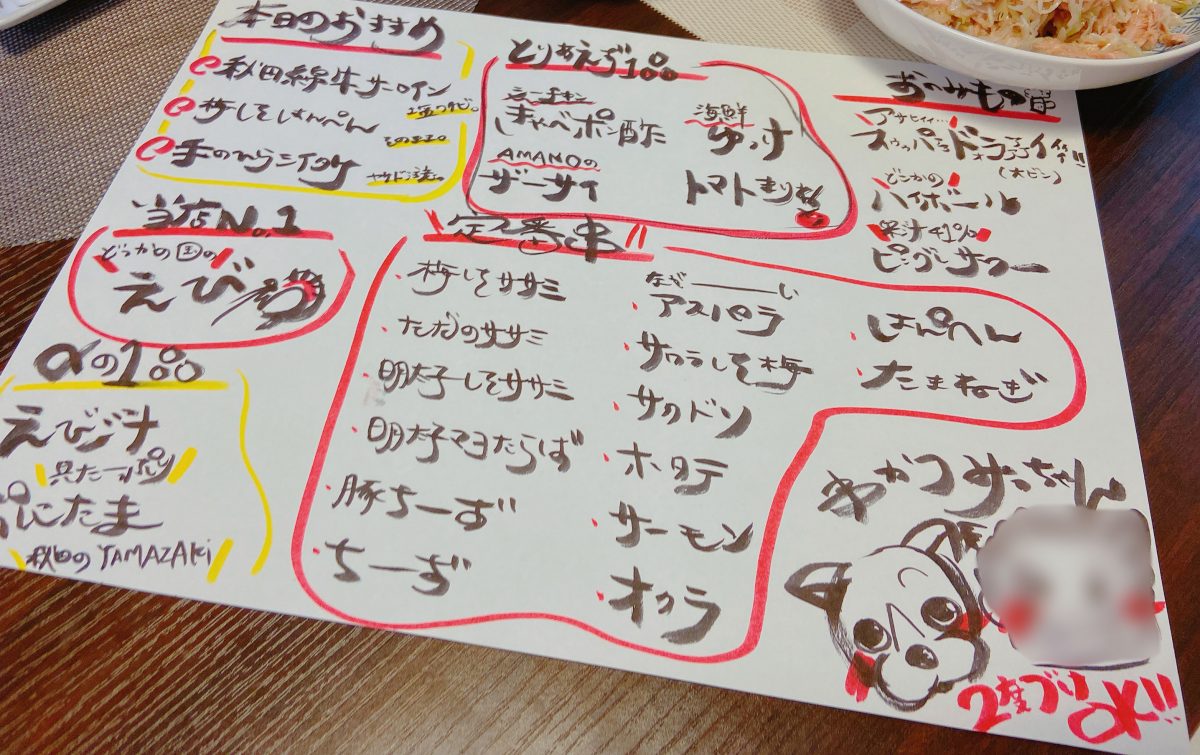 本日のおすすめ
秋田錦牛サーロイン
塩ワサビ。
梅しそはんぺん
そのまま。
手のひらシイタケ
当店No.1
どっかの国の
えび
αの1品
えび汁
具たーっぷり
ぷにたま
秋田のYAMAZAKi
とりあえず1品
きゃべポン酢
AMANOの
ザーサイ
海鮮
ゆっけ
トマトまりね
定番串
・梅しそササミ
・ただのササミ
・明太子しそササミ
・明太子マヨたらば
・豚ちーず
・ちーず
なが———い
・アスパラ
・サワラしそ梅
・サカドン
・ホタテ
・サーモン
・オクラ
・はんぺん
・たまねぎ
おのみもの
アサヒィィ…
(大ビン)
どこかの
ハイボール
果汁
サワー
ちゃん
2度づけ
OK!!